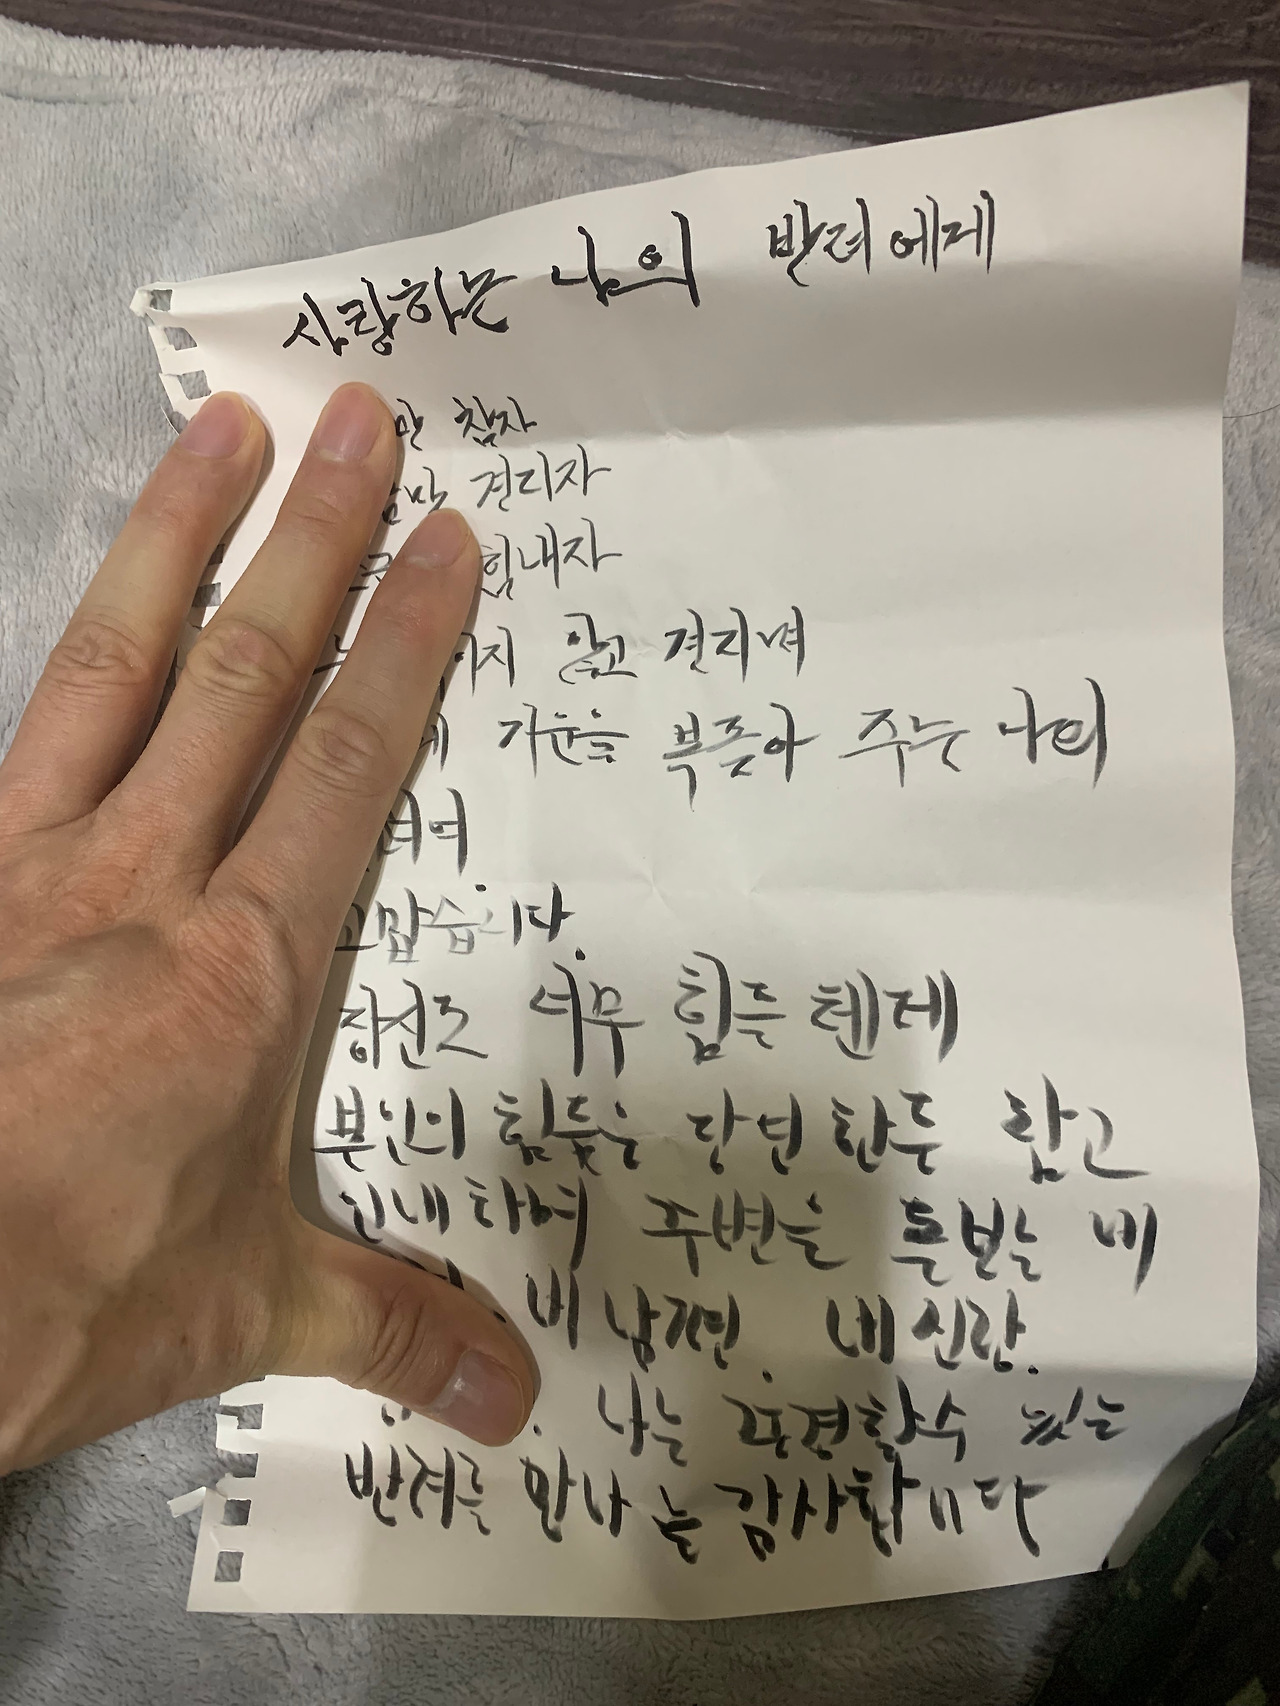 사랑하는 나의 반려에게
만 참자
만 견디자
힘내자
않고 견디며
가운을 북돋아 주는 나의
려여.
고맙습니다.
당신도 너무 힘든 텐데
본인의 힘듦은 당연한듯 참고
인내하며 주변을 돌보는 내
내 남편. 내 신랑.
나는 표현할수 없는
반려를 만나 늘 감사합니다